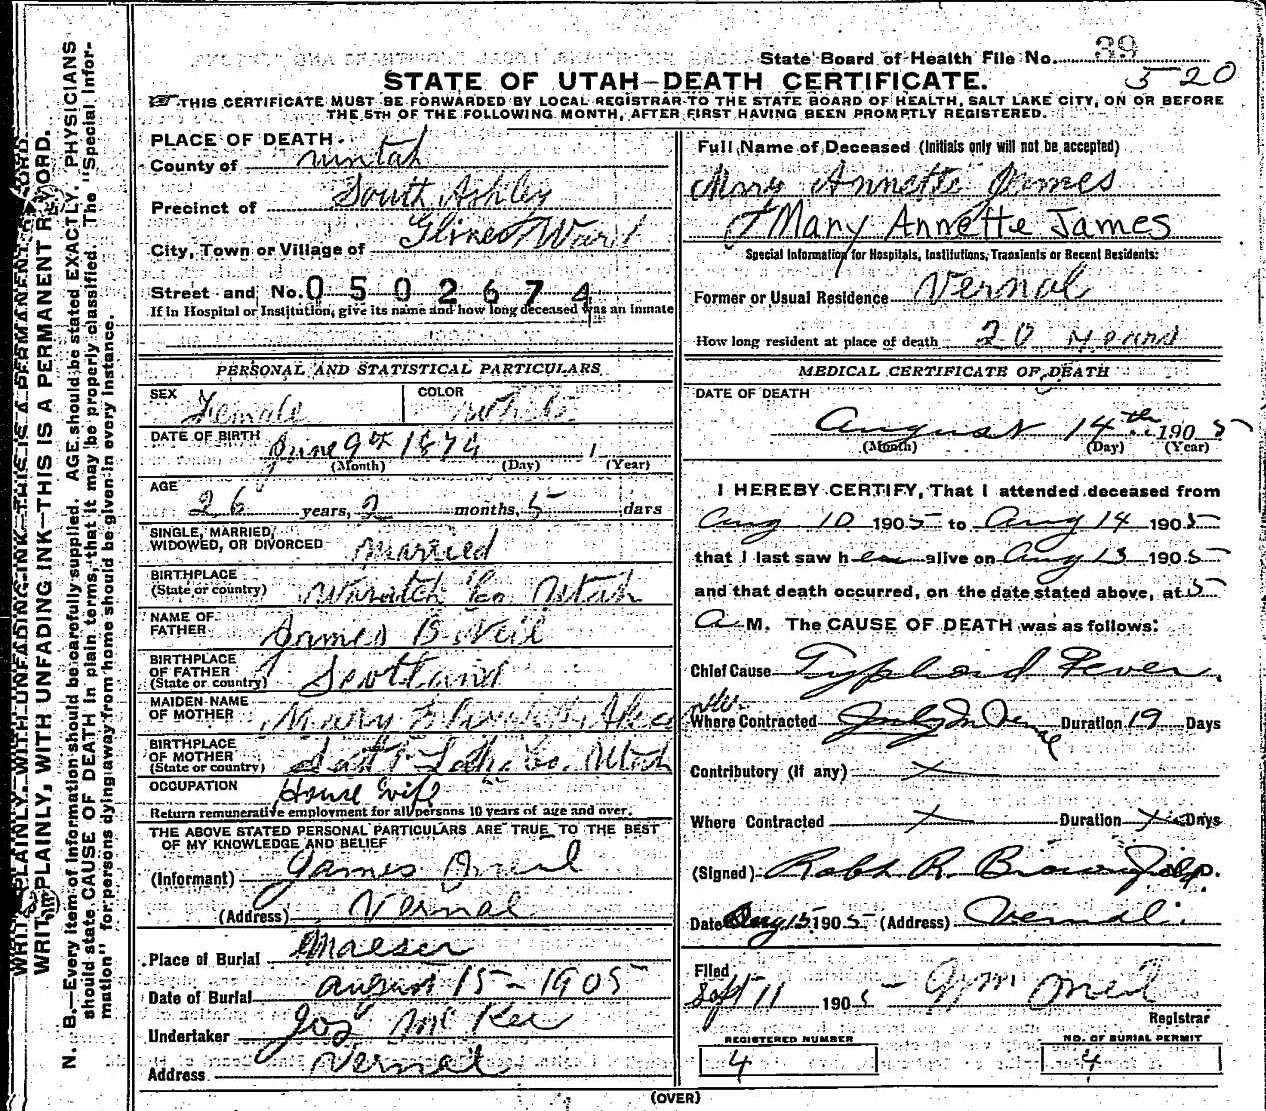 State Board of Health File No. 39
520
STATE OF UTAH—DEATH CERTIFICATE.
THIS CERTIFICATE MUST BE FORWARDED BY LOCAL REGISTRAR TO THE STATE BOARD OF HEALTH, SALT LAKE CITY, ON OR BEFORE
THE 5TH OF THE FOLLOWING MONTH, AFTER FIRST HAVING BEEN PROMPTLY REGISTERED.
WRITE PLAINLY, WITH UNFADING INK—THIS IS A PERMANENT RECORD.
N. B.—Every item of information should be carefully supplied. AGE should be stated EXACTLY. PHYSICIANS
should state CAUSE OF DEATH in plain terms, that it may be properly classified. The "Special Infor-
mation" for persons dying away from home should be given in every instance.
PLACE OF DEATH
County of Uintah
Precinct of South Ashley
City, Town or Village of Glines Ward
Street and No. 0502674
If in Hospital or Institution, give its name and how long deceased was an inmate
PERSONAL AND STATISTICAL PARTICULARS
SEX Female COLOR White
DATE OF BIRTH June 9th 1879
(Month) (Day) (Year)
AGE
26 years, 2 months, 5 days
SINGLE, MARRIED,
WIDOWED, OR DIVORCED Married
BIRTHPLACE
(State or country) Wasatch Co. Utah
NAME OF
FATHER James O Neil
BIRTHPLACE
OF FATHER
(State or country) Scotland
MAIDEN NAME
OF MOTHER Mary Elizabeth
BIRTHPLACE
OF MOTHER
(State or country) Salt Lake Co. Utah
OCCUPATION House Wife
Return remunerative employment for all persons 10 years of age and over.
THE ABOVE STATED PERSONAL PARTICULARS ARE TRUE TO THE BEST
OF MY KNOWLEDGE AND BELIEF
(Informant) James Oneil
(Address) Vernal
Place of Burial Maeser
Date of Burial August 15 - 1905
Undertaker Jos McKee
Address Vernal
Full Name of Deceased (Initials only will not be accepted)
Mary Annette James
Mary Annette James
Special Information for Hospitals, Institutions, Transients or Recent Residents:
Former or Usual Residence Vernal
How long resident at place of death 20 years
MEDICAL CERTIFICATE OF DEATH
DATE OF DEATH
August 14th 1905
(Month) (Day) (Year)
I HEREBY CERTIFY, That I attended deceased from
Aug 10 1905 to Aug 14 1905
that I last saw her alive on Aug 13 1905
and that death occurred, on the date stated above, at 5
A M. The CAUSE OF DEATH was as follows:
Chief Cause Typhoid Fever.
Where Contracted Duration 19 Days
Contributory (If any) x
Where Contracted x Duration x Days
(Signed) Robt. R. Brownfield
Date Aug 15 1905 (Address) Vernal
Filed
Sept 11 1905 Oneil
Registrar
REGISTERED NUMBER
4
NO. OF BURIAL PERMIT
4
(OVER)